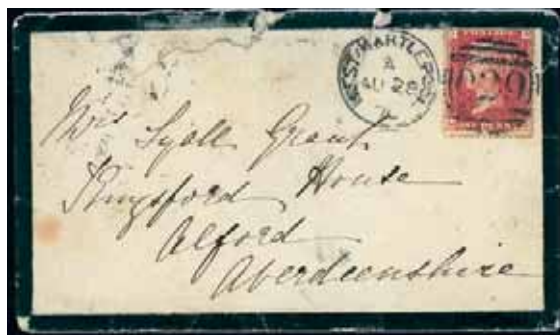 WEST-HARTLEPOOL
A
AU 28
Mrs Lyall Grant
Kingsford House
Alford
Aberdeenshire